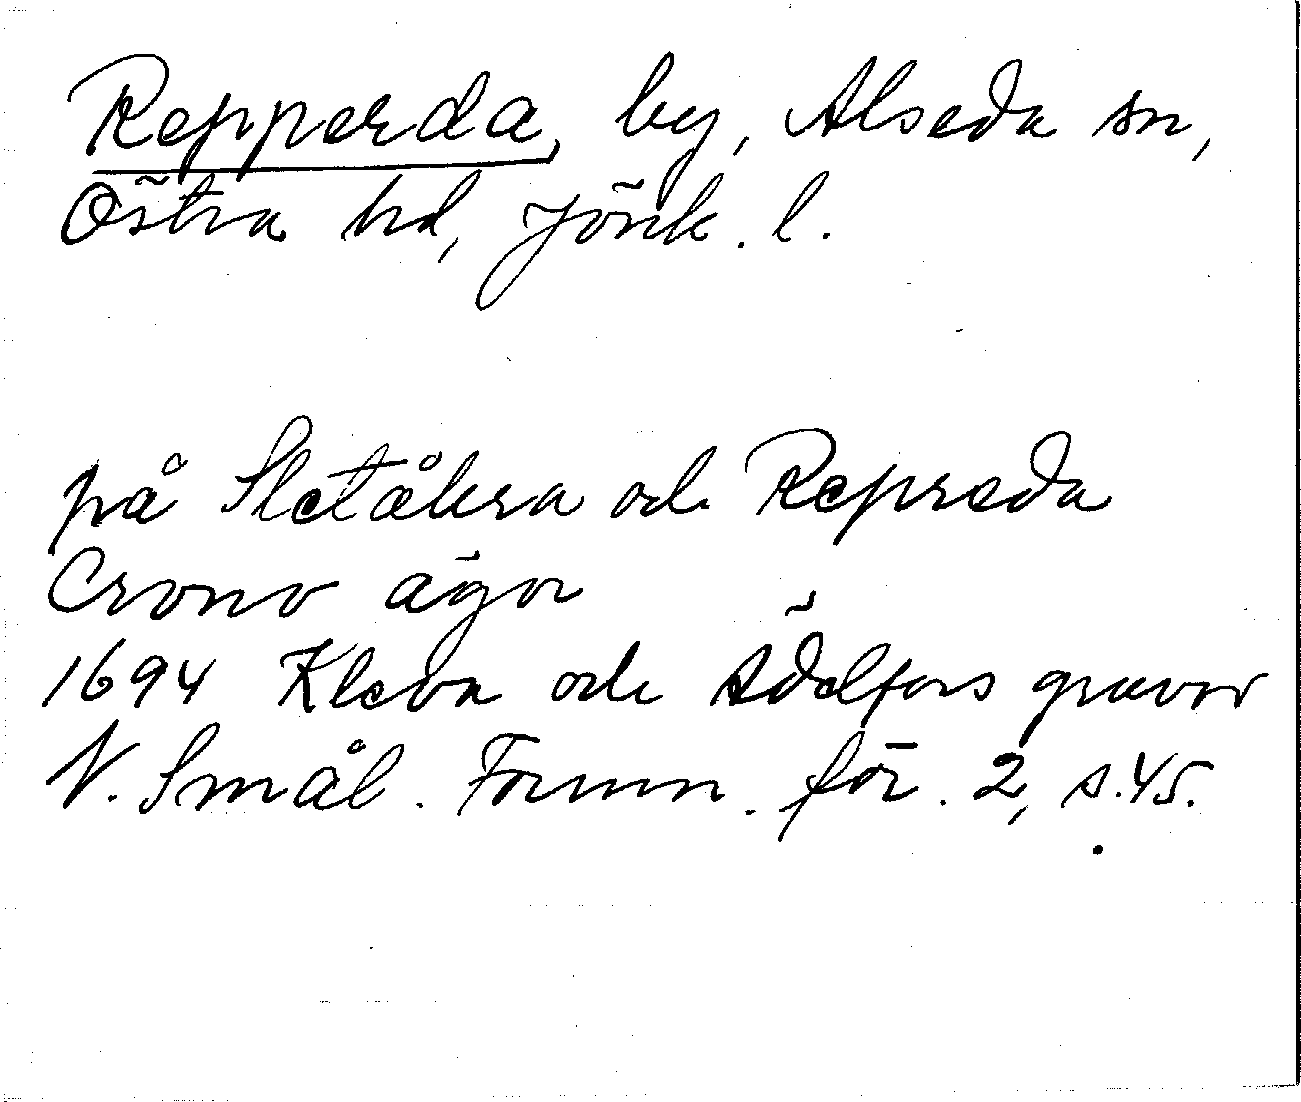 Repperda, by, Alseda sn,
Östra hd, Jönk. l.
på Sletåkra och Repreda
Crono ägor
1694 Kleva och Ädelfors gruvor
N. Smål. Fornm. för. 2, s. 45.